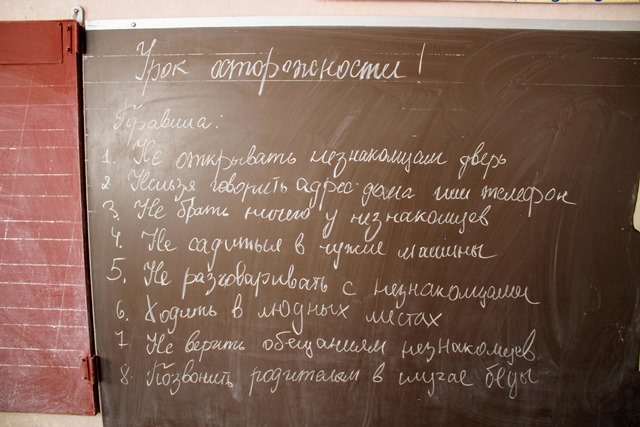 Урок осторожности!
Правила:
1. Не открывать незнакомцам дверь
2. Нельзя говорить адрес дома или телефон
3. Не брать ничего у незнакомцев
4. Не садиться в чужие машины
5. Не разговаривать с незнакомцами
6. Ходить в людных местах
7 Не верить обещаниям незнакомцев
8. Позвонить родителям в случае беды